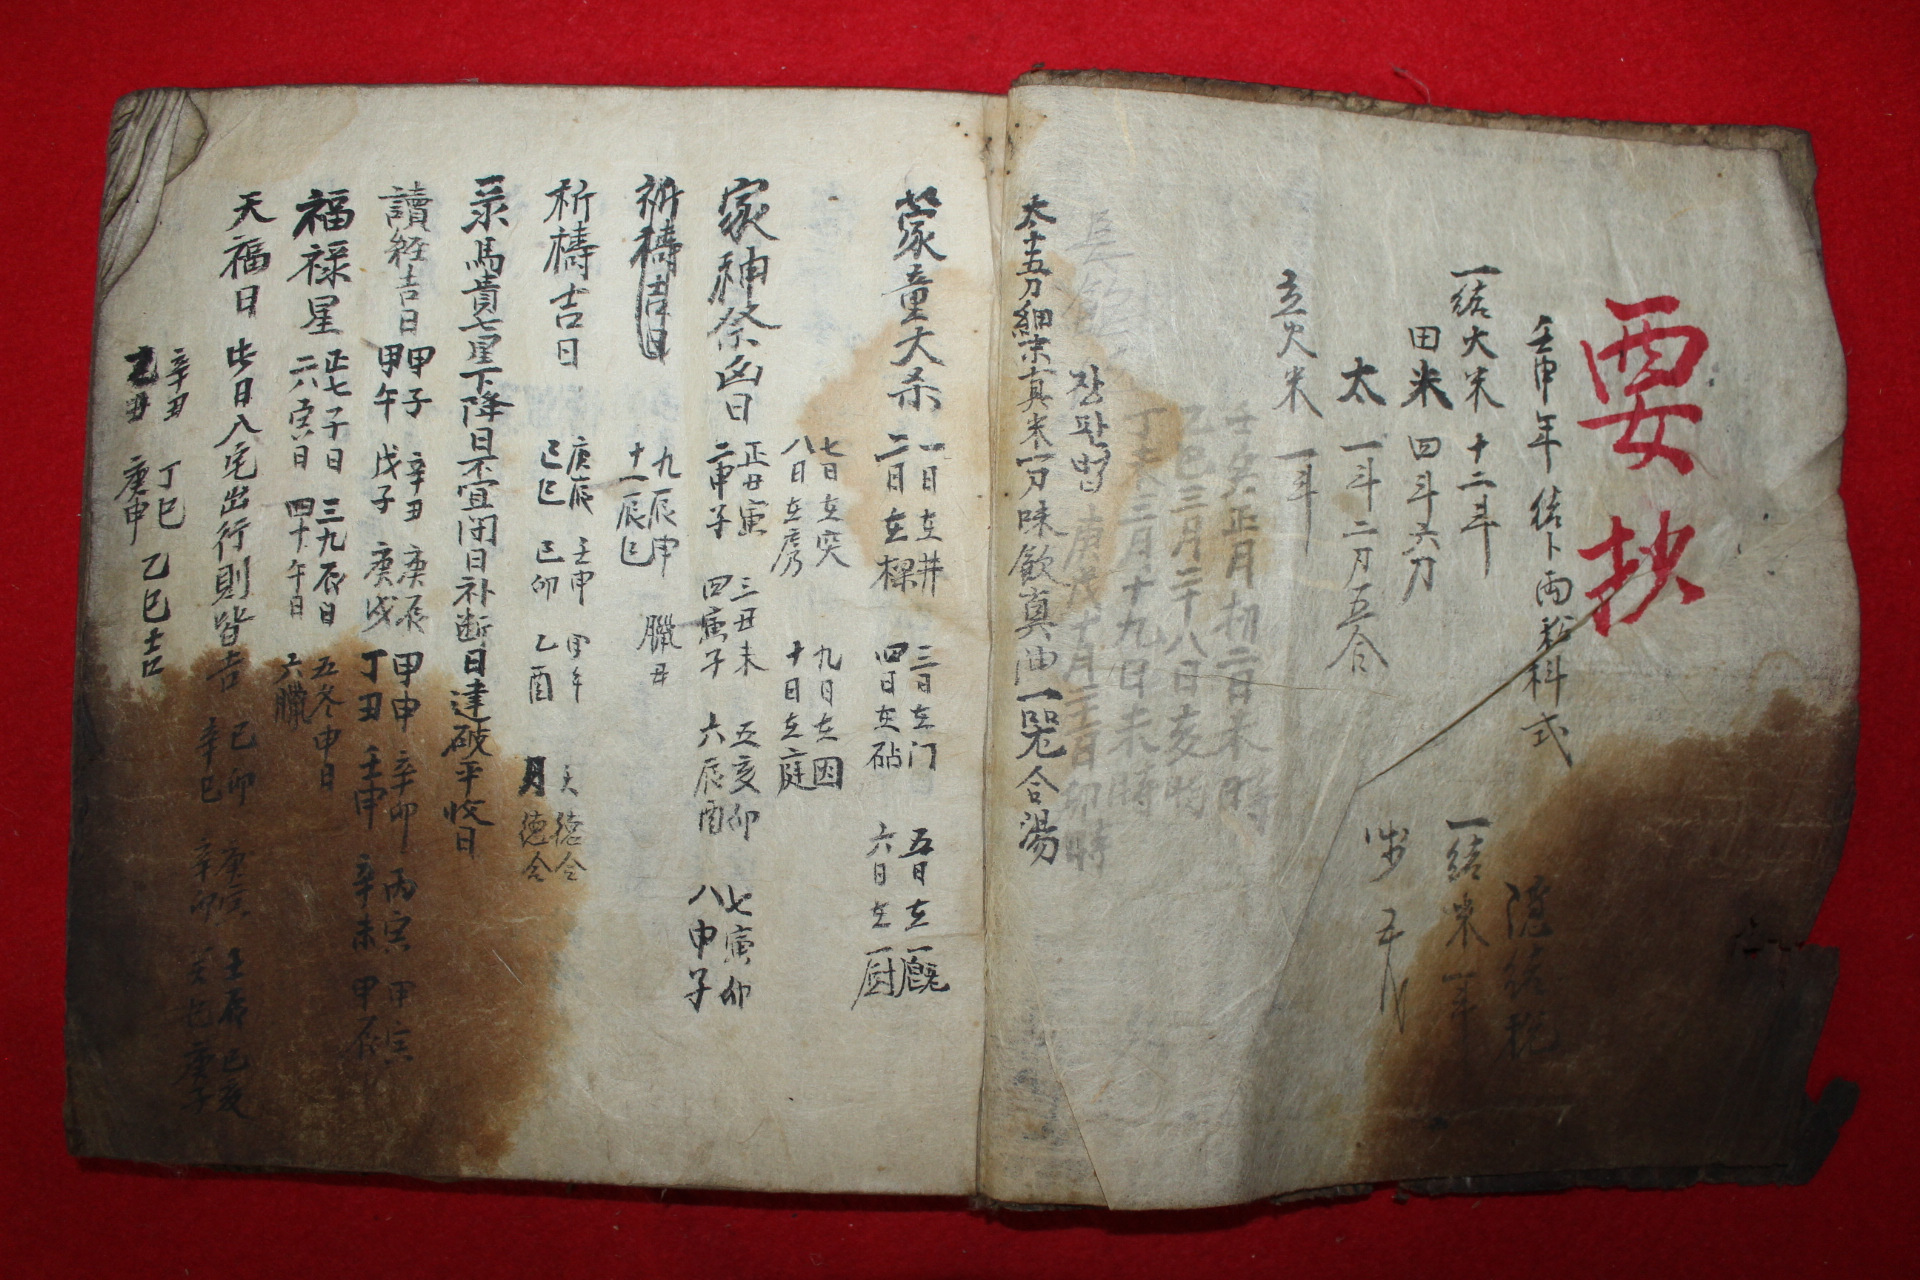 要抄
壬申年 結卜兩 料式
一結大米 十二斗
田米 四斗六刀
太 一斗二刀五合
立火米 一斗
一結米一斗
壬癸正月初二日未時
乙巳三月二十八日亥時
丁未三月十九日未時
庚戌十月二十日卯時
장판법
太十五刀細末真末一刀味飮真油一器合湯
蒙童大杀 一日在井 三日在门 五日在
二日在樑 四日在砧 六日在厨
七日在突 九日在因
八日在房 十日在庭
家神祭凶日 正丑寅 三丑未 五亥卯 七寅卯
二申子 四寅子 六辰酉 八申子
祈禱吉日 九辰申 臘丑
十一辰巳
祈禱吉日 庚辰 壬申 甲午 天德合
己巳 己卯 乙酉 月德合
彔馬貴七星下降日不宜閉日补断日建破平收日
讀経吉日 甲子 辛丑 庚辰 甲申 辛卯 丙寅 甲寅
甲午 戊子 庚戌 丁丑 壬申 辛未 甲辰
福禄星 正七子日 三九辰日 五冬申日
二八寅日 四十午日 六臘
天福日 此日入宅出行則皆吉 己卯 庚寅 壬辰 己亥
辛巳 辛卯 庚子
辛丑 丁巳 乙巳吉
乙丑 庚申